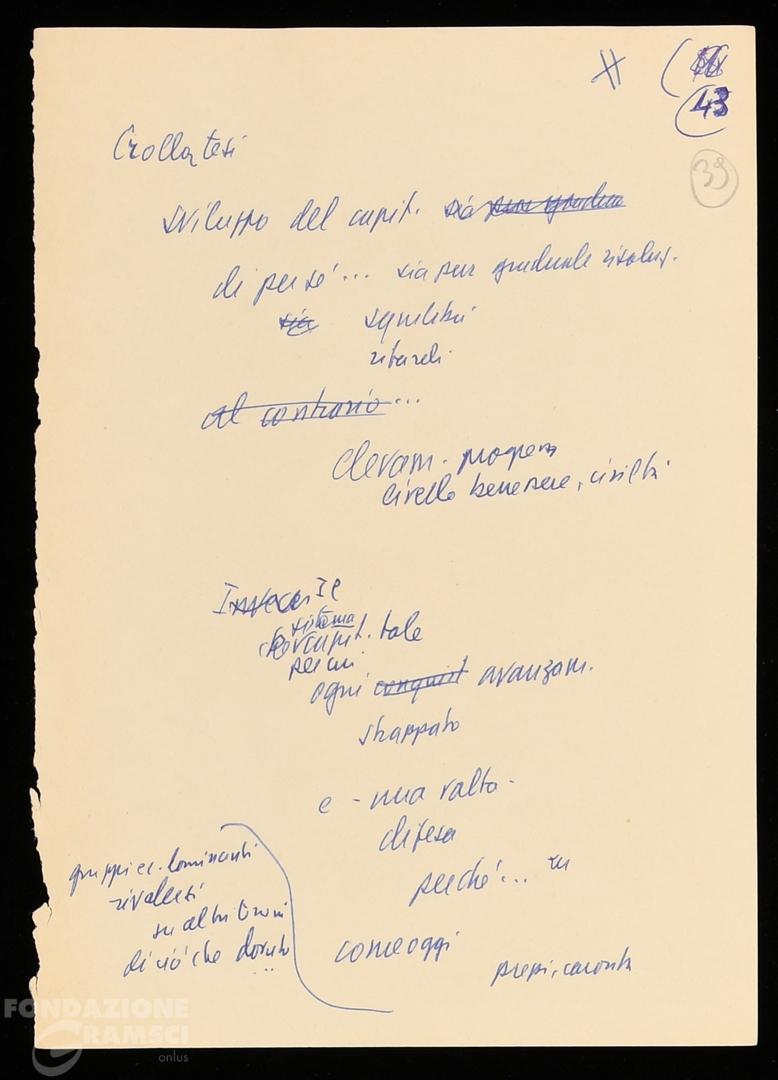 43
39
Crolla tesi
sviluppo del capit. sia pur graduale
di per sé... sia pur graduale risoluz.
sia squilibri
ritardi
al contrario...
elevam. progress
livello benessere, civiltà
Invece Il
sistema
capit. tale
per cui
ogni conquist avanzam.
strappato
e - una volta -
difesa
perché...
gruppi ec. dominanti
rivalersi
su altri terreni
di ciò che dovuto
...
come oggi
prezzi, carovita
FONDAZIONE
GRAMSCI
onlus